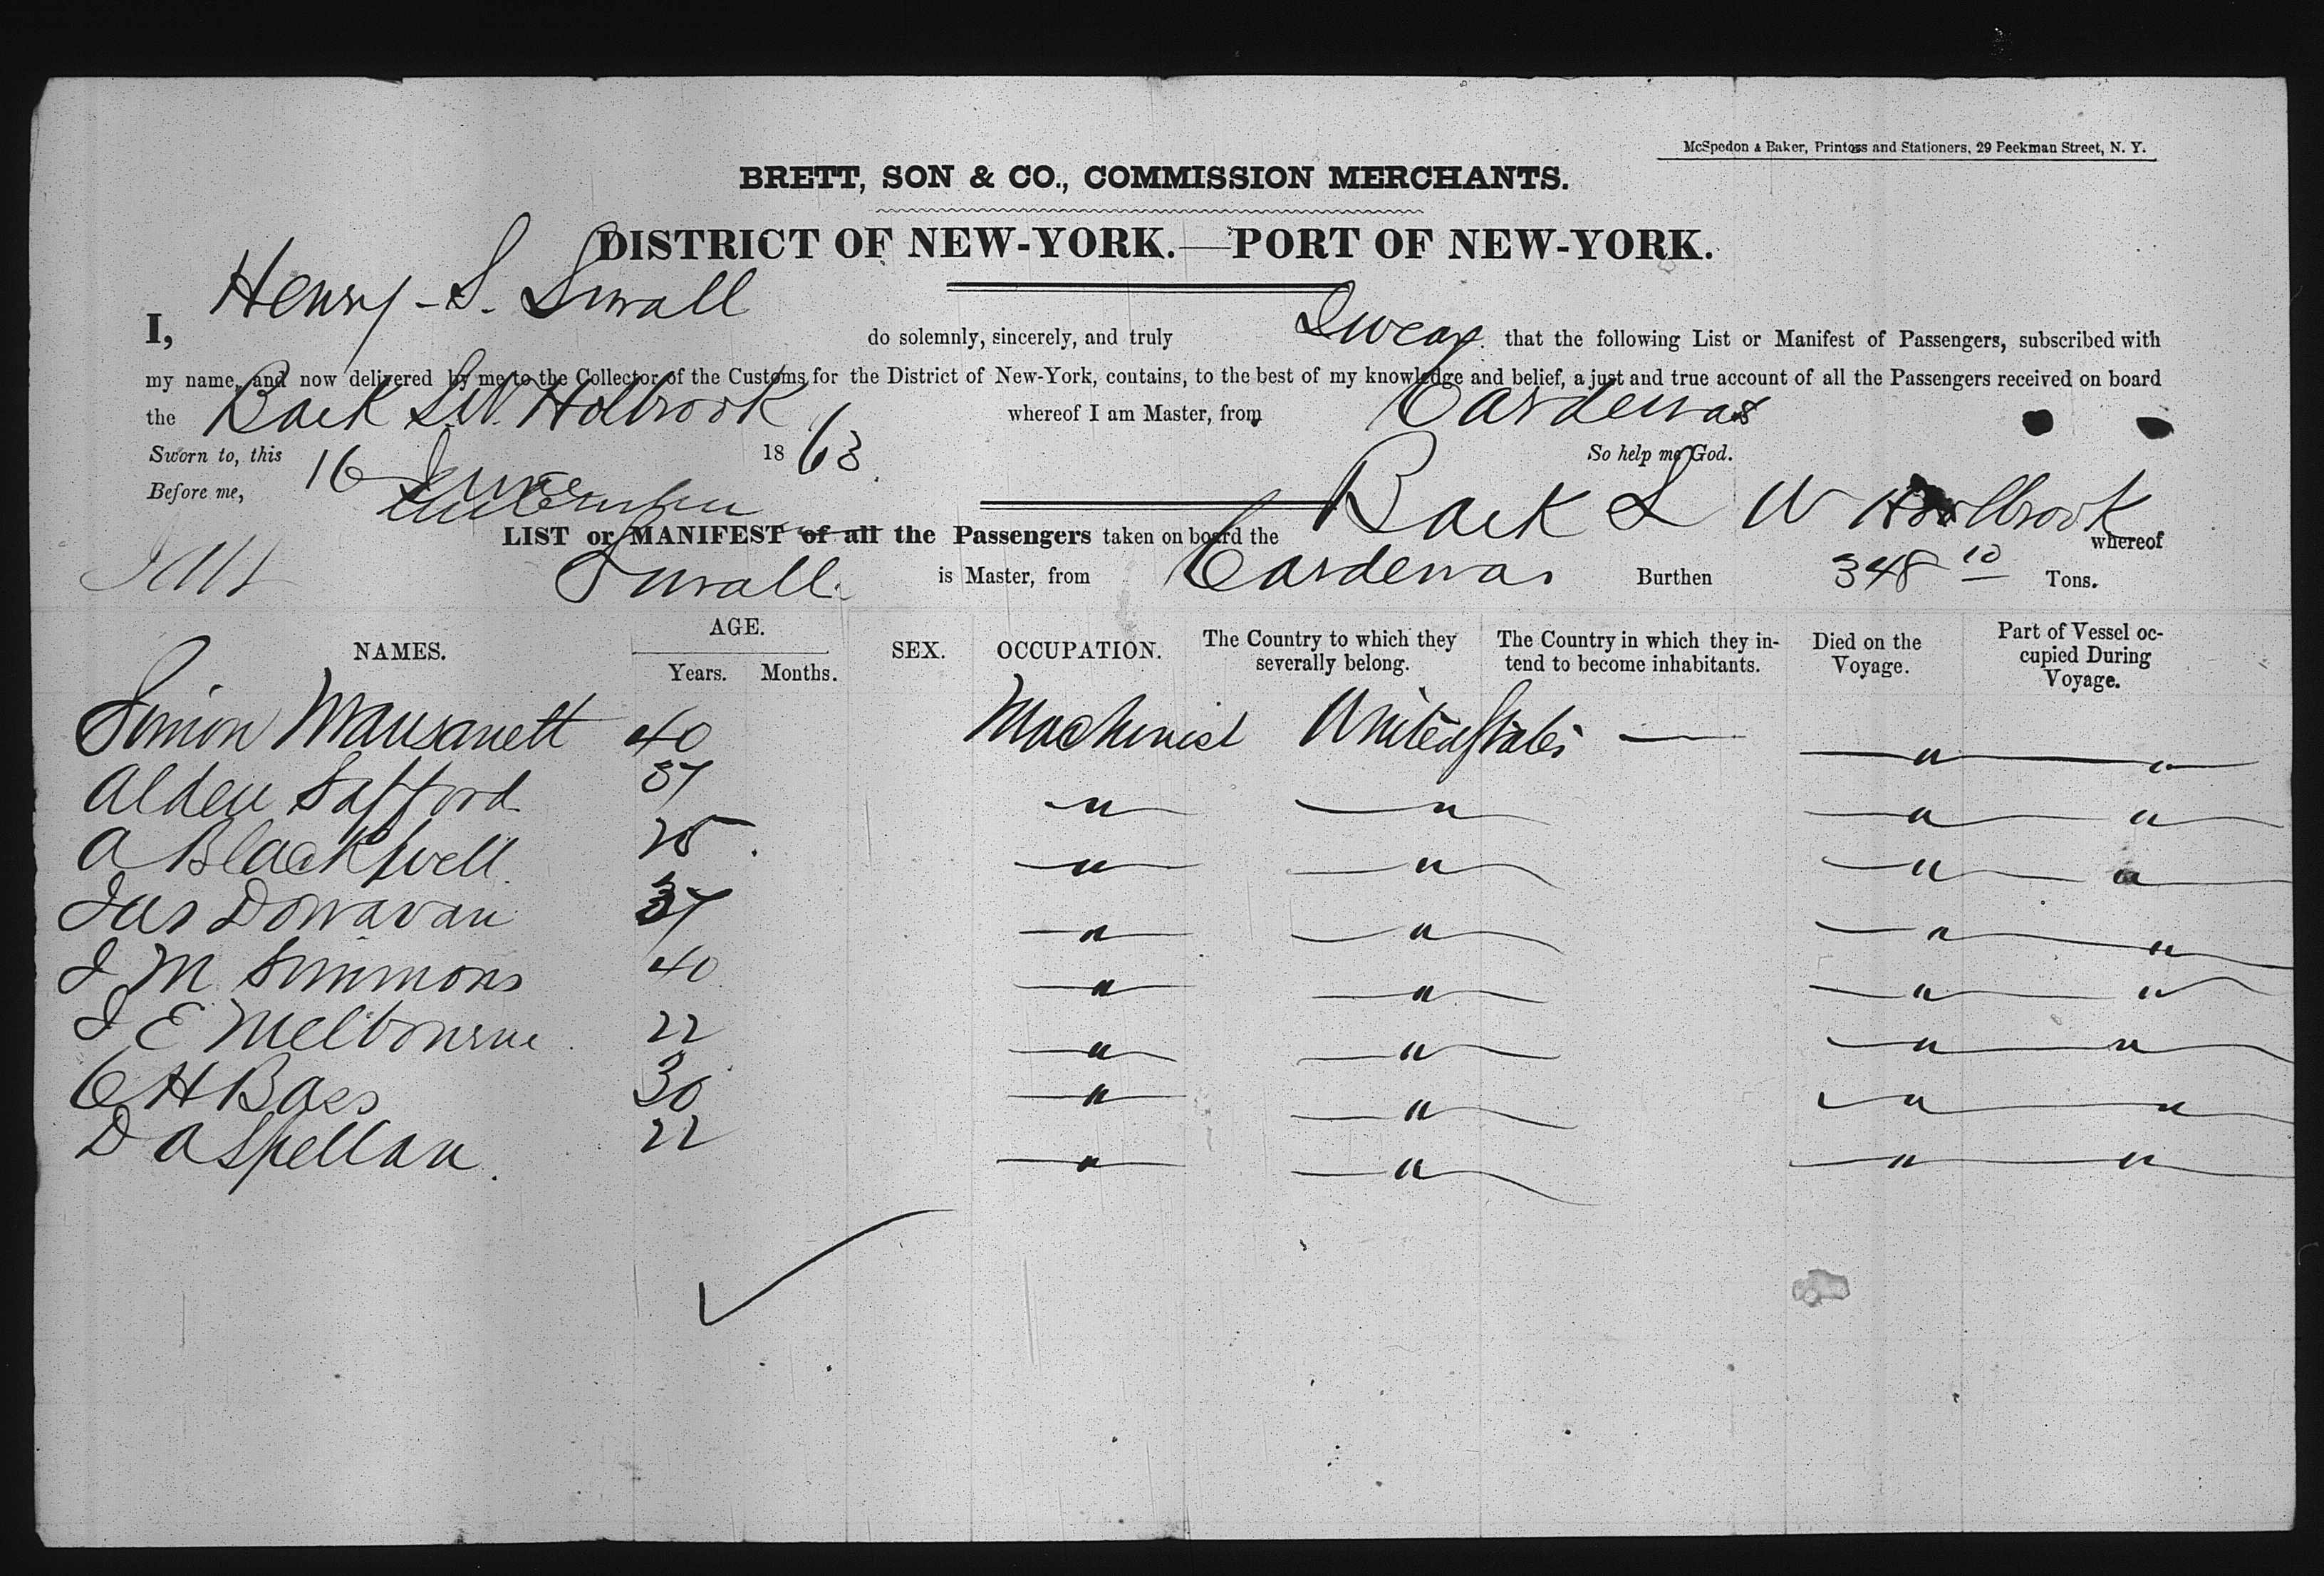 McSpedon & Baker, Printers and Stationers, 29 Beekman Street, N. Y.
BRETT, SON & CO., COMMISSION MERCHANTS.
DISTRICT OF NEW-YORK.—PORT OF NEW-YORK.
I, Henry S. Small do solemnly, sincerely, and truly Swear that the following List or Manifest of Passengers, subscribed with
my name, and now delivered by me to the Collector of the Customs for the District of New-York, contains, to the best of my knowledge and belief, a just and true account of all the Passengers received on board
the Bark L.W. Holbrook whereof I am Master, from Cardenas
Sworn to, this 16 June 1863 So help me God.
Before me,
LIST or MANIFEST of all the Passengers taken on board the Bark L W Holbrook whereof
Small is Master, from Cardenas Burthen 348 10 Tons.
NAMES. AGE. Years. Months. SEX. OCCUPATION. The Country to which they severally belong. The Country in which they intend to become inhabitants. Died on the Voyage. Part of Vessel occupied During Voyage.
Simon Mausanett 40 Machinist United States — " "
Alden Safford 37 " " " "
A Blackwell 25 " " " "
Jas Donavan 37 " " " "
J M Simmons 40 " " " "
J E Melbourne 22 " " " "
C H Bass 30 " " " "
D A Spellan 22 " " " "